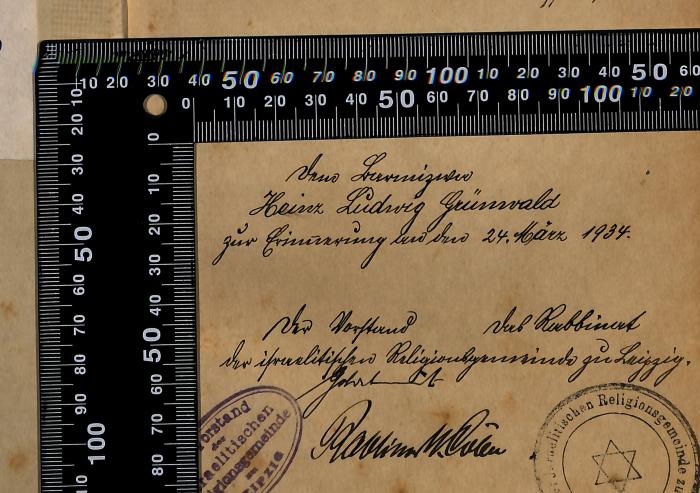 Dem Barmizwa
Heinz Ludwig Grünwald
zur Erinnerung an den 24. März 1934.
Der Vorstand das Rabbinat
der israelitischen Religionsgemeinde zu Leipzig.
Rabbiner
Vorstand
der
israelitischen
Religionsgemeinde
zu
Leipzig
Israelitischen Religionsgemeinde zu
10 20 30 40 50 60 70 80 90 100 10 20 30 40 50 60
0 10 20 30 40 50 60 70 80 90 100 10 20
10 20 30 40 50 60 70 80 90 100
0 10 20 30 40 50 60 70 80